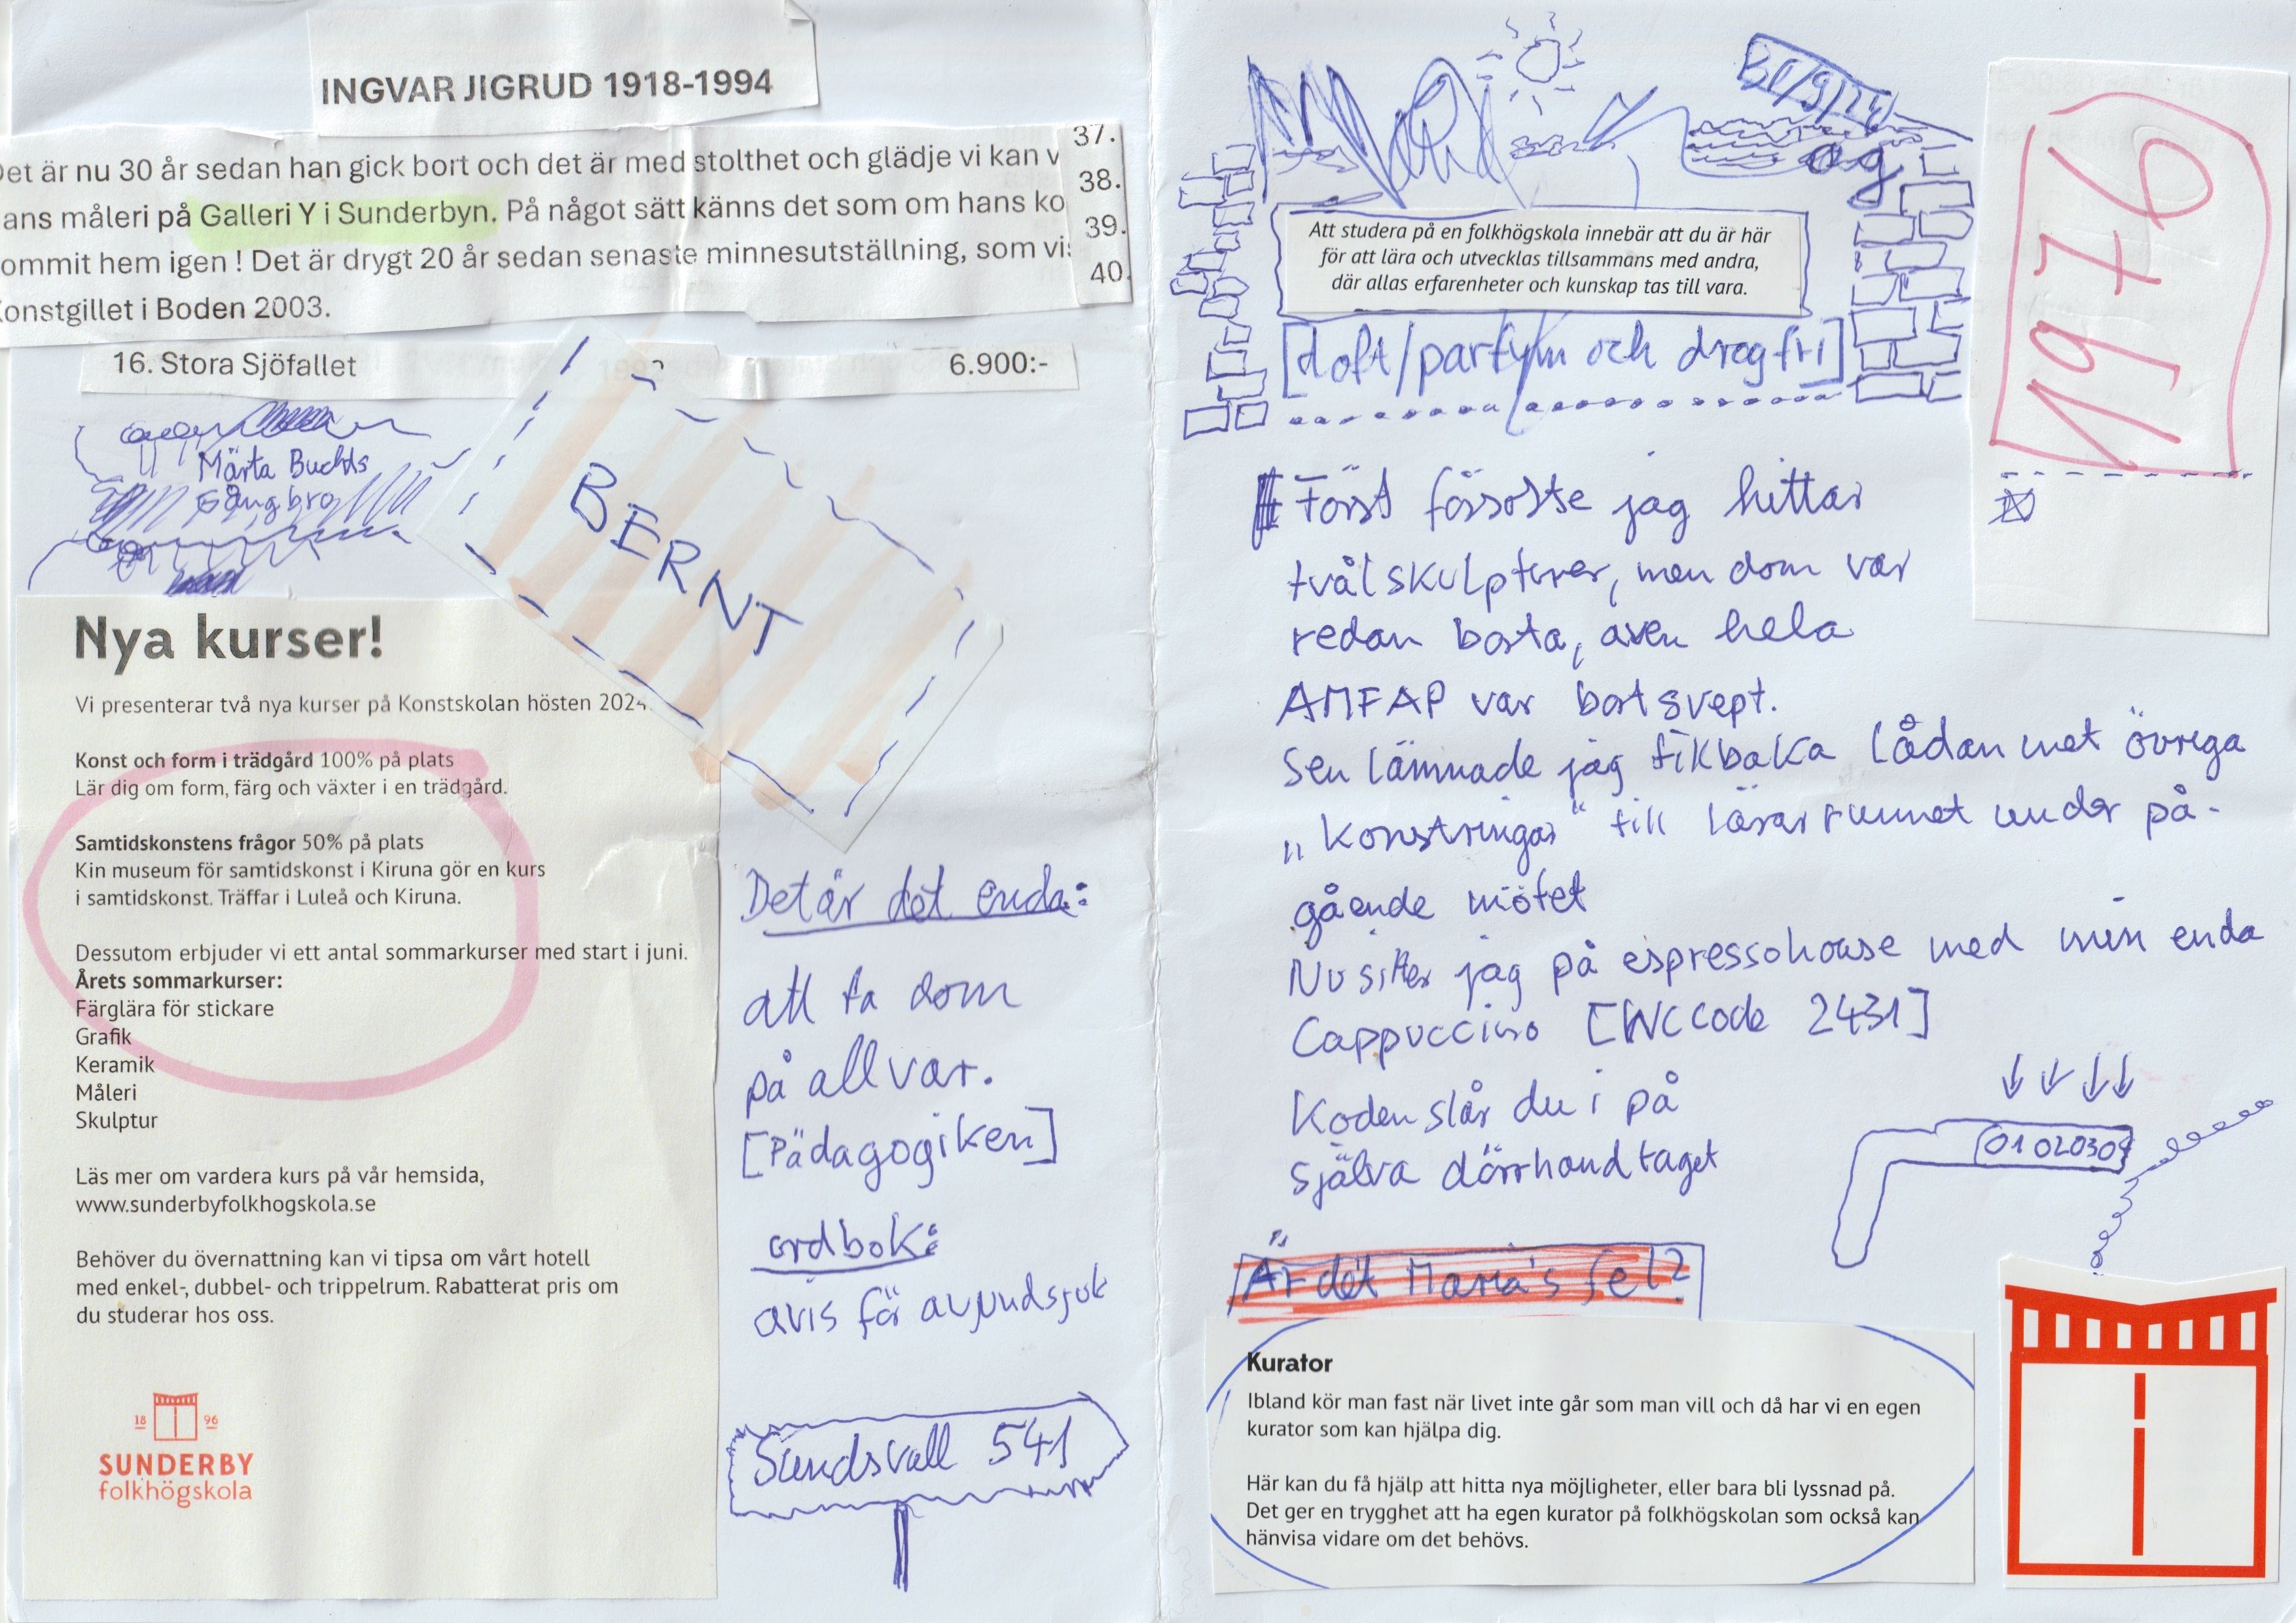 INGVAR JIGRUD 1918-1994
Det är nu 30 år sedan han gick bort och det är med stolthet och glädje vi kan v
ans måleri på Galleri Y i Sunderbyn. På något sätt känns det som om hans ko
ommit hem igen ! Det är drygt 20 år sedan senaste minnesutställning, som vis
Konstgillet i Boden 2003.
37.
38.
39.
40.
16. Stora Sjöfallet 6.900:-
Märta Buchts
Gångbro
BERNT
Nya kurser!
Vi presenterar två nya kurser på Konstskolan hösten 2024.
Konst och form i trädgård 100% på plats
Lär dig om form, färg och växter i en trädgård.
Samtidskonstens frågor 50% på plats
Kin museum för samtidskonst i Kiruna gör en kurs
i samtidskonst. Träffar i Luleå och Kiruna.
Dessutom erbjuder vi ett antal sommarkurser med start i juni.
Årets sommarkurser:
Färglära för stickare
Grafik
Keramik
Måleri
Skulptur
Läs mer om vardera kurs på vår hemsida,
www.sunderbyfolkhogskola.se
Behöver du övernattning kan vi tipsa om vårt hotell
med enkel-, dubbel- och trippelrum. Rabatterat pris om
du studerar hos oss.
18 96
SUNDERBY
folkhögskola
Det är det enda:
att ta dom
på allvar.
[Pädagogiken]
ordbok:
avis för avundsjuk
Sundsvall 541
ag
Att studera på en folkhögskola innebär att du är här
för att lära och utvecklas tillsammans med andra,
där allas erfarenheter och kunskap tas till vara.
[doft/partym och drogfri]
1976
Först försoste jag hittar
tvålskulpturer, men dom var
redan borta, aven hela
AMFAP var bortsvept.
Sen lämnade jag tikbaka lådan met övriga
„Konstringar“ till lärarrummet under på-
gående mötet
Nu sitter jag på espressohouse med min enda
Cappuccino [WC Code 2431]
Koden slår du i på
själva dörrhandtaget
01020304
Är det Maria's fel?
Kurator
Ibland kör man fast när livet inte går som man vill och då har vi en egen
kurator som kan hjälpa dig.
Här kan du få hjälp att hitta nya möjligheter, eller bara bli lyssnad på.
Det ger en trygghet att ha egen kurator på folkhögskolan som också kan
hänvisa vidare om det behövs.